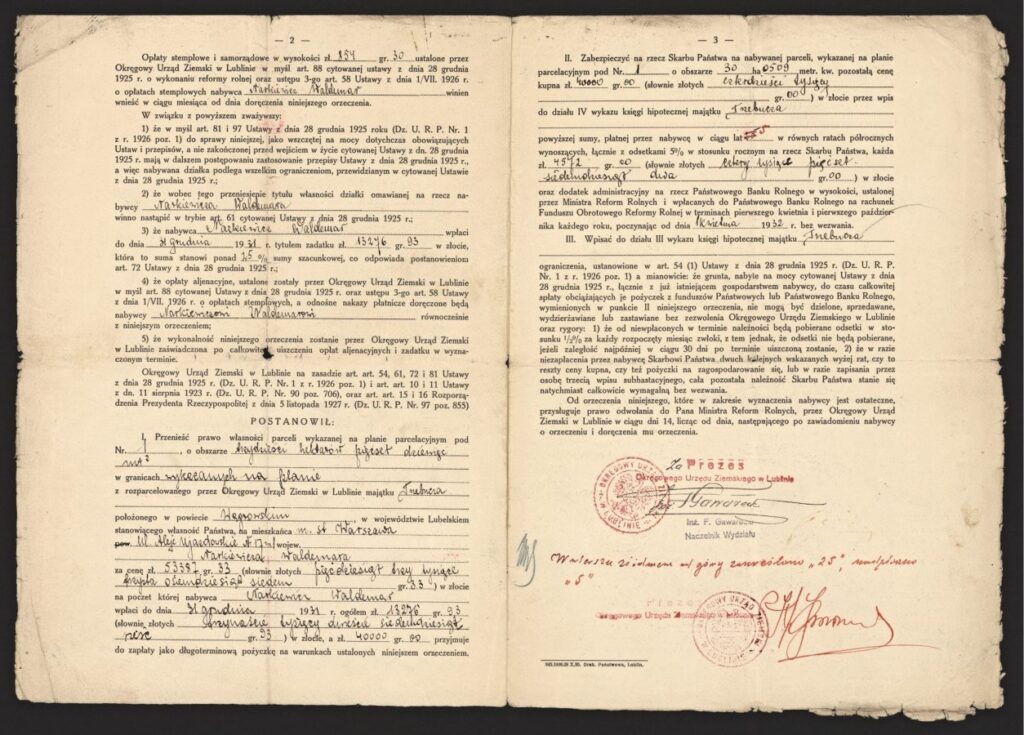 — 2 —
Opłaty stemplowe i samorządowe w wysokości zł 854 gr. 30 ustalone przez
Okręgowy Urząd Ziemski w Lublinie w myśl art. 88 cytowanej ustawy z dnia 28 grudnia
1925 r. o wykonaniu reformy rolnej oraz ustępu 3-go art. 58 Ustawy z dnia 1/VII. 1926 r.
o opłatach stemplowych nabywca Narkiewicz Waldemar winien
wnieść w ciągu miesiąca od dnia doręczenia niniejszego orzeczenia.
W związku z powyższem zważywszy:
1) że w myśl art. 81 i 97 Ustawy z dnia 28 grudnia 1925 roku (Dz. U. R. P. Nr. 1
z r. 1926 poz. 1) do sprawy niniejszej, jako wszczętej na mocy dotychczas obowiązujących
Ustaw i przepisów, a nie zakończonej przed wejściem w życie cytowanej Ustawy z dnia 28 grudnia
1925 r. mają w dalszem postępowaniu zastosowanie przepisy Ustawy z dnia 28 grudnia 1925 r.,
a więc nabywana działka podlega wszelkim ograniczeniom, przewidzianym w cytowanej Ustawie
z dnia 28 grudnia 1925 r.;
2) że wobec tego przeniesienie tytułu własności działki omawianej na rzecz na-
bywcy Narkiewicza Waldemara
winno nastąpić w trybie art. 61 cytowanej Ustawy z dnia 28 grudnia 1925 r.;
3) że nabywca Narkiewicz Waldemar wpłaci
do dnia 31 grudnia 1931 r. tytułem zadatku zł 13276 gr. 93 w złocie,
która to suma stanowi ponad 25 % sumy szacunkowej, co odpowiada postanowieniom
art. 72 Ustawy z dnia 28 grudnia 1925 r.;
4) że opłaty aljenacyjne, ustalone zostały przez Okręgowy Urząd Ziemski w Lublinie
w myśl art. 88 cytowanej Ustawy z dnia 28 grudnia 1925 r. oraz ustępu 3-go art. 58 Ustawy
z dnia 1/VII. 1926 r. o opłatach stemplowych, a odnośne nakazy płatnicze doręczone będą
nabywcy Narkiewiczowi Waldemarowi równocześnie
z niniejszym orzeczeniem;
5) że wykonalność niniejszego orzeczenia zostanie przez Okręgowy Urząd Ziemski
w Lublinie zaświadczona po całkowitem uiszczeniu opłat aljenacyjnych i zadatku w wyzna-
czonym terminie.
Okręgowy Urząd Ziemski w Lublinie na zasadzie art. art. 54, 61, 72 i 81 Ustawy
z dnia 28 grudnia 1925 r. (Dz. U. R. P. Nr. 1 z r. 1926 poz. 1) i art. art. 10 i 11 Ustawy
z dn. 11 sierpnia 1923 r. (Dz. U. R. P. Nr. 90 poz. 706), oraz art. art. 15 i 16 Rozporzą-
dzenia Prezydenta Rzeczypospolitej z dnia 5 listopada 1927 r. (Dz. U. R. P. Nr. 97 poz. 855)
POSTANOWIŁ:
I. Przenieść prawo własności parceli wykazanej na planie parcelacyjnym pod
Nr. 1, o obszarze trzydzieści hektarów pięćset dziewięć
mt²
w granicach wykazanych na planie
z rozparcelowanego przez Okręgowy Urząd Ziemski w Lublinie majątku Trzebucza
położonego w powiecie Węgrowskim, w województwie Lubelskim
stanowiącego własność Państwa, na mieszkańca m. st. Warszawa
pow. Ul. Aleje Ujazdowskie № 17 wojew.
Narkiewicza Waldemara
za cenę zł. 53387 gr. 33 (słownie złotych pięćdziesiąt trzy tysiące
trzysta osiemdziesiąt siedem gr. 33) w złocie
na poczet której nabywca Narkiewicz Waldemar
wpłaci do dnia 31 grudnia 1931 r. ogółem zł 13276 gr. 93
(słownie złotych trzynaście tysięcy dwieście siedemdziesiąt
sześć gr. 93) w złocie, a zł. 40000 gr. 00 przyjmuje
do zapłaty jako długoterminową pożyczkę na warunkach ustalonych niniejszem orzeczeniem.
— 3 —
II. Zabezpieczyć na rzecz Skarbu Państwa na nabywanej parceli, wykazanej na planie
parcelacyjnym pod Nr. 1 o obszarze 30 ha 0509 metr. kw. pozostałą cenę
kupna zł. 40000 gr. 00 (słownie złotych czterdzieści tysięcy
gr. 00) w złocie przez wpis
do działu IV wykazu księgi hipotecznej majątku Trzebucza
powyższej sumy, płatnej przez nabywcę w ciągu lat 5 w równych ratach półrocznych
wynoszących, łącznie z odsetkami 5% w stosunku rocznym na rzecz Skarbu Państwa, każda
zł. 4572 gr. 00 (słownie złotych cztery tysiące pięćset
siedemdziesiąt dwa gr. 00) w złocie
oraz dodatek administracyjny na rzecz Państwowego Banku Rolnego w wysokości, ustalonej
przez Ministra Reform Rolnych i wpłacanych do Państwowego Banku Rolnego na rachunek
Funduszu Obrotowego Reformy Rolnej w terminach pierwszego kwietnia i pierwszego paździer-
nika każdego roku, poczynając od dnia 1 kwietnia 1932 r. bez wezwania.
III. Wpisać do działu III wykazu księgi hipotecznej majątku Trzebucza
ograniczenia, ustanowione w art. 54 (1) Ustawy z dnia 28 grudnia 1925 r. (Dz. U. R. P.
Nr. 1 z r. 1926 poz. 1) a mianowicie: że grunta, nabyte na mocy cytowanej Ustawy z dnia
28 grudnia 1925 r., łącznie z już istniejącem gospodarstwem nabywcy, do czasu całkowitej
spłaty obciążających je pożyczek z funduszów Państwowych lub Państwowego Banku Rolnego,
wymienionych w punkcie II niniejszego orzeczenia, nie mogą być dzielone, sprzedawane,
wydzierżawiane lub zastawiane bez zezwolenia Okręgowego Urzędu Ziemskiego w Lublinie
oraz rygory: 1) że od niewpłaconych w terminie należności będą pobierane odsetki w sto-
sunku ½% za każdy rozpoczęty miesiąc zwłoki, z tem jednak, że odsetki nie będą pobierane,
jeżeli zaległość najpóźniej w ciągu 30 dni po terminie uiszczoną zostanie, 2) że w razie
niezapłacenia przez nabywcę Skarbowi Państwa dwuch kolejnych wskazanych wyżej rat, czy to
reszty ceny kupna, czy też pożyczki na zagospodarowanie się, lub w razie zapisania przez
osobę trzecią wpisu subhastacyjnego, cała pozostała należność Skarbu Państwa stanie się
natychmiast całkowicie wymagalną bez wezwania.
Od orzeczenia niniejszego, które w zakresie wyznaczenia nabywcy jest ostateczne,
przysługuje prawo odwołania do Pana Ministra Reform Rolnych, przez Okręgowy Urząd
Ziemski w Lublinie w ciągu dni 14, licząc od dnia, następującego po zawiadomieniu nabywcy
o orzeczeniu i doręczenia mu orzeczenia.
Za Prezes
Okręgowego Urzędu Ziemskiego w Lublinie
Inż. F. Gawaroński
Naczelnik Wydziału
W wierszu siódmem od góry zakreślono "25", nadpisano
"5"
Prezes
Okręgowego Urzędu Ziemskiego w Lublinie